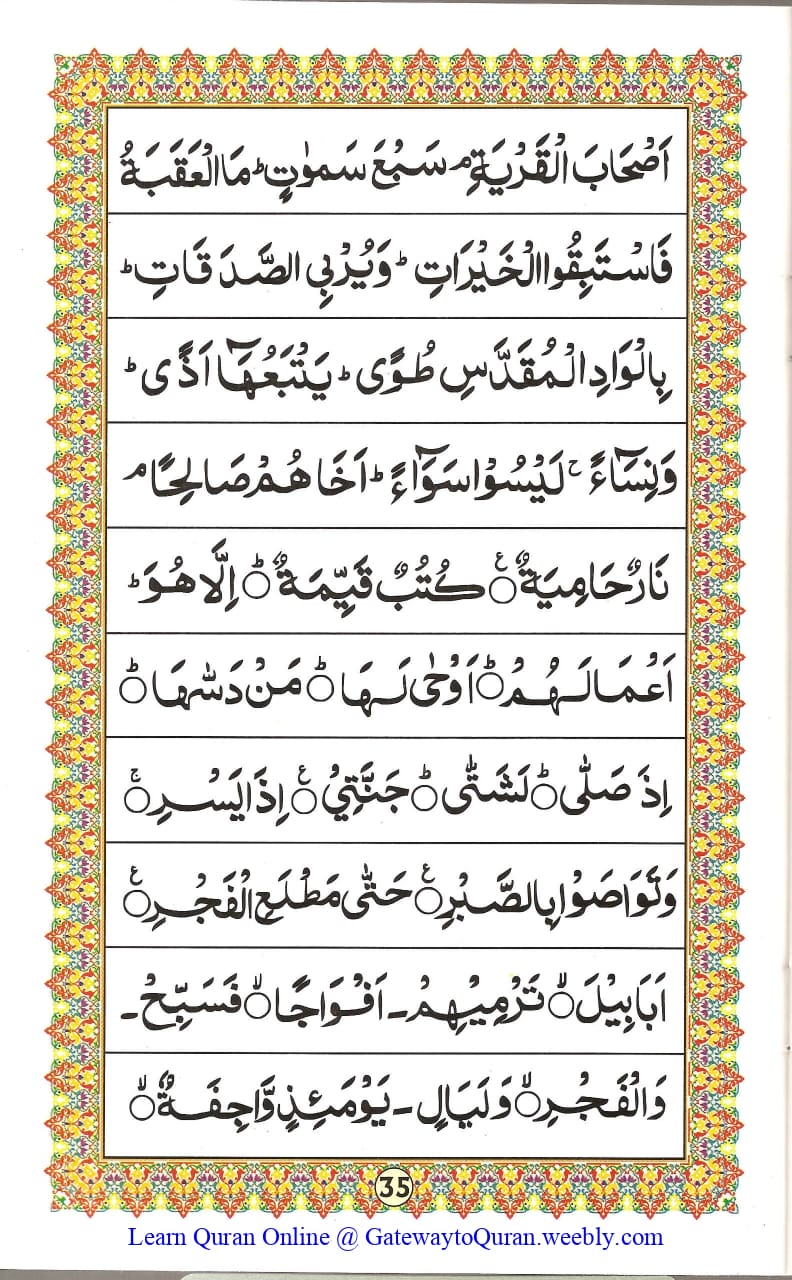 اَصْحَابَ الْقَرْيَةِ ۘ سَبْعَ سَمٰوٰتٍ ؕ مَا الْعَقَبَةُ
فَاسْتَبِقُوا الْخَيْرَاتِ ؕ وَيُرْبِي الصَّدَقَاتِ ؕ
بِالْوَادِ الْمُقَدَّسِ طُوًى ؕ يَتْبَعُهَآ اَذًى ؕ
وَنِسَآءً ۚ لَيْسُوْا سَوَآءً ؕ اَخَاهُمْ صَالِحًا ۘ
نَارٌ حَامِيَةٌ ۝ۧ كُتُبٌ قَيِّمَةٌ ۝ؕ اِلَّا هُوَ ؕ
اَعْمَالَهُمْ ۝ؕ اَوْحٰى لَهَا ۝ؕ مَنْ دَسّٰىهَا ۝ؕ
اِذَ صَلّٰى ۝ؕ لَشَتّٰى ۝ؕ جَنَّتِيْ ۝ۧ اِذَا يَسْرِ ۝ۚ
وَتَوَاصَوْا بِالصَّبْرِ ۝ۧ حَتّٰى مَطْلَعِ الْفَجْرِ ۝ۧ
اَبَابِيْلَ ۝ۙ تَرْمِيْهِمْ ـ اَفْوَاجًا ۝ۙ فَسَبِّحْ ـ
وَالْفَجْرِ ۝ۙ وَلَيَالٍ ـ يَوْمَئِذٍ وَّاجِفَةٌ ۝ۙ
35
Learn Quran Online @ GatewaytoQuran.weebly.com